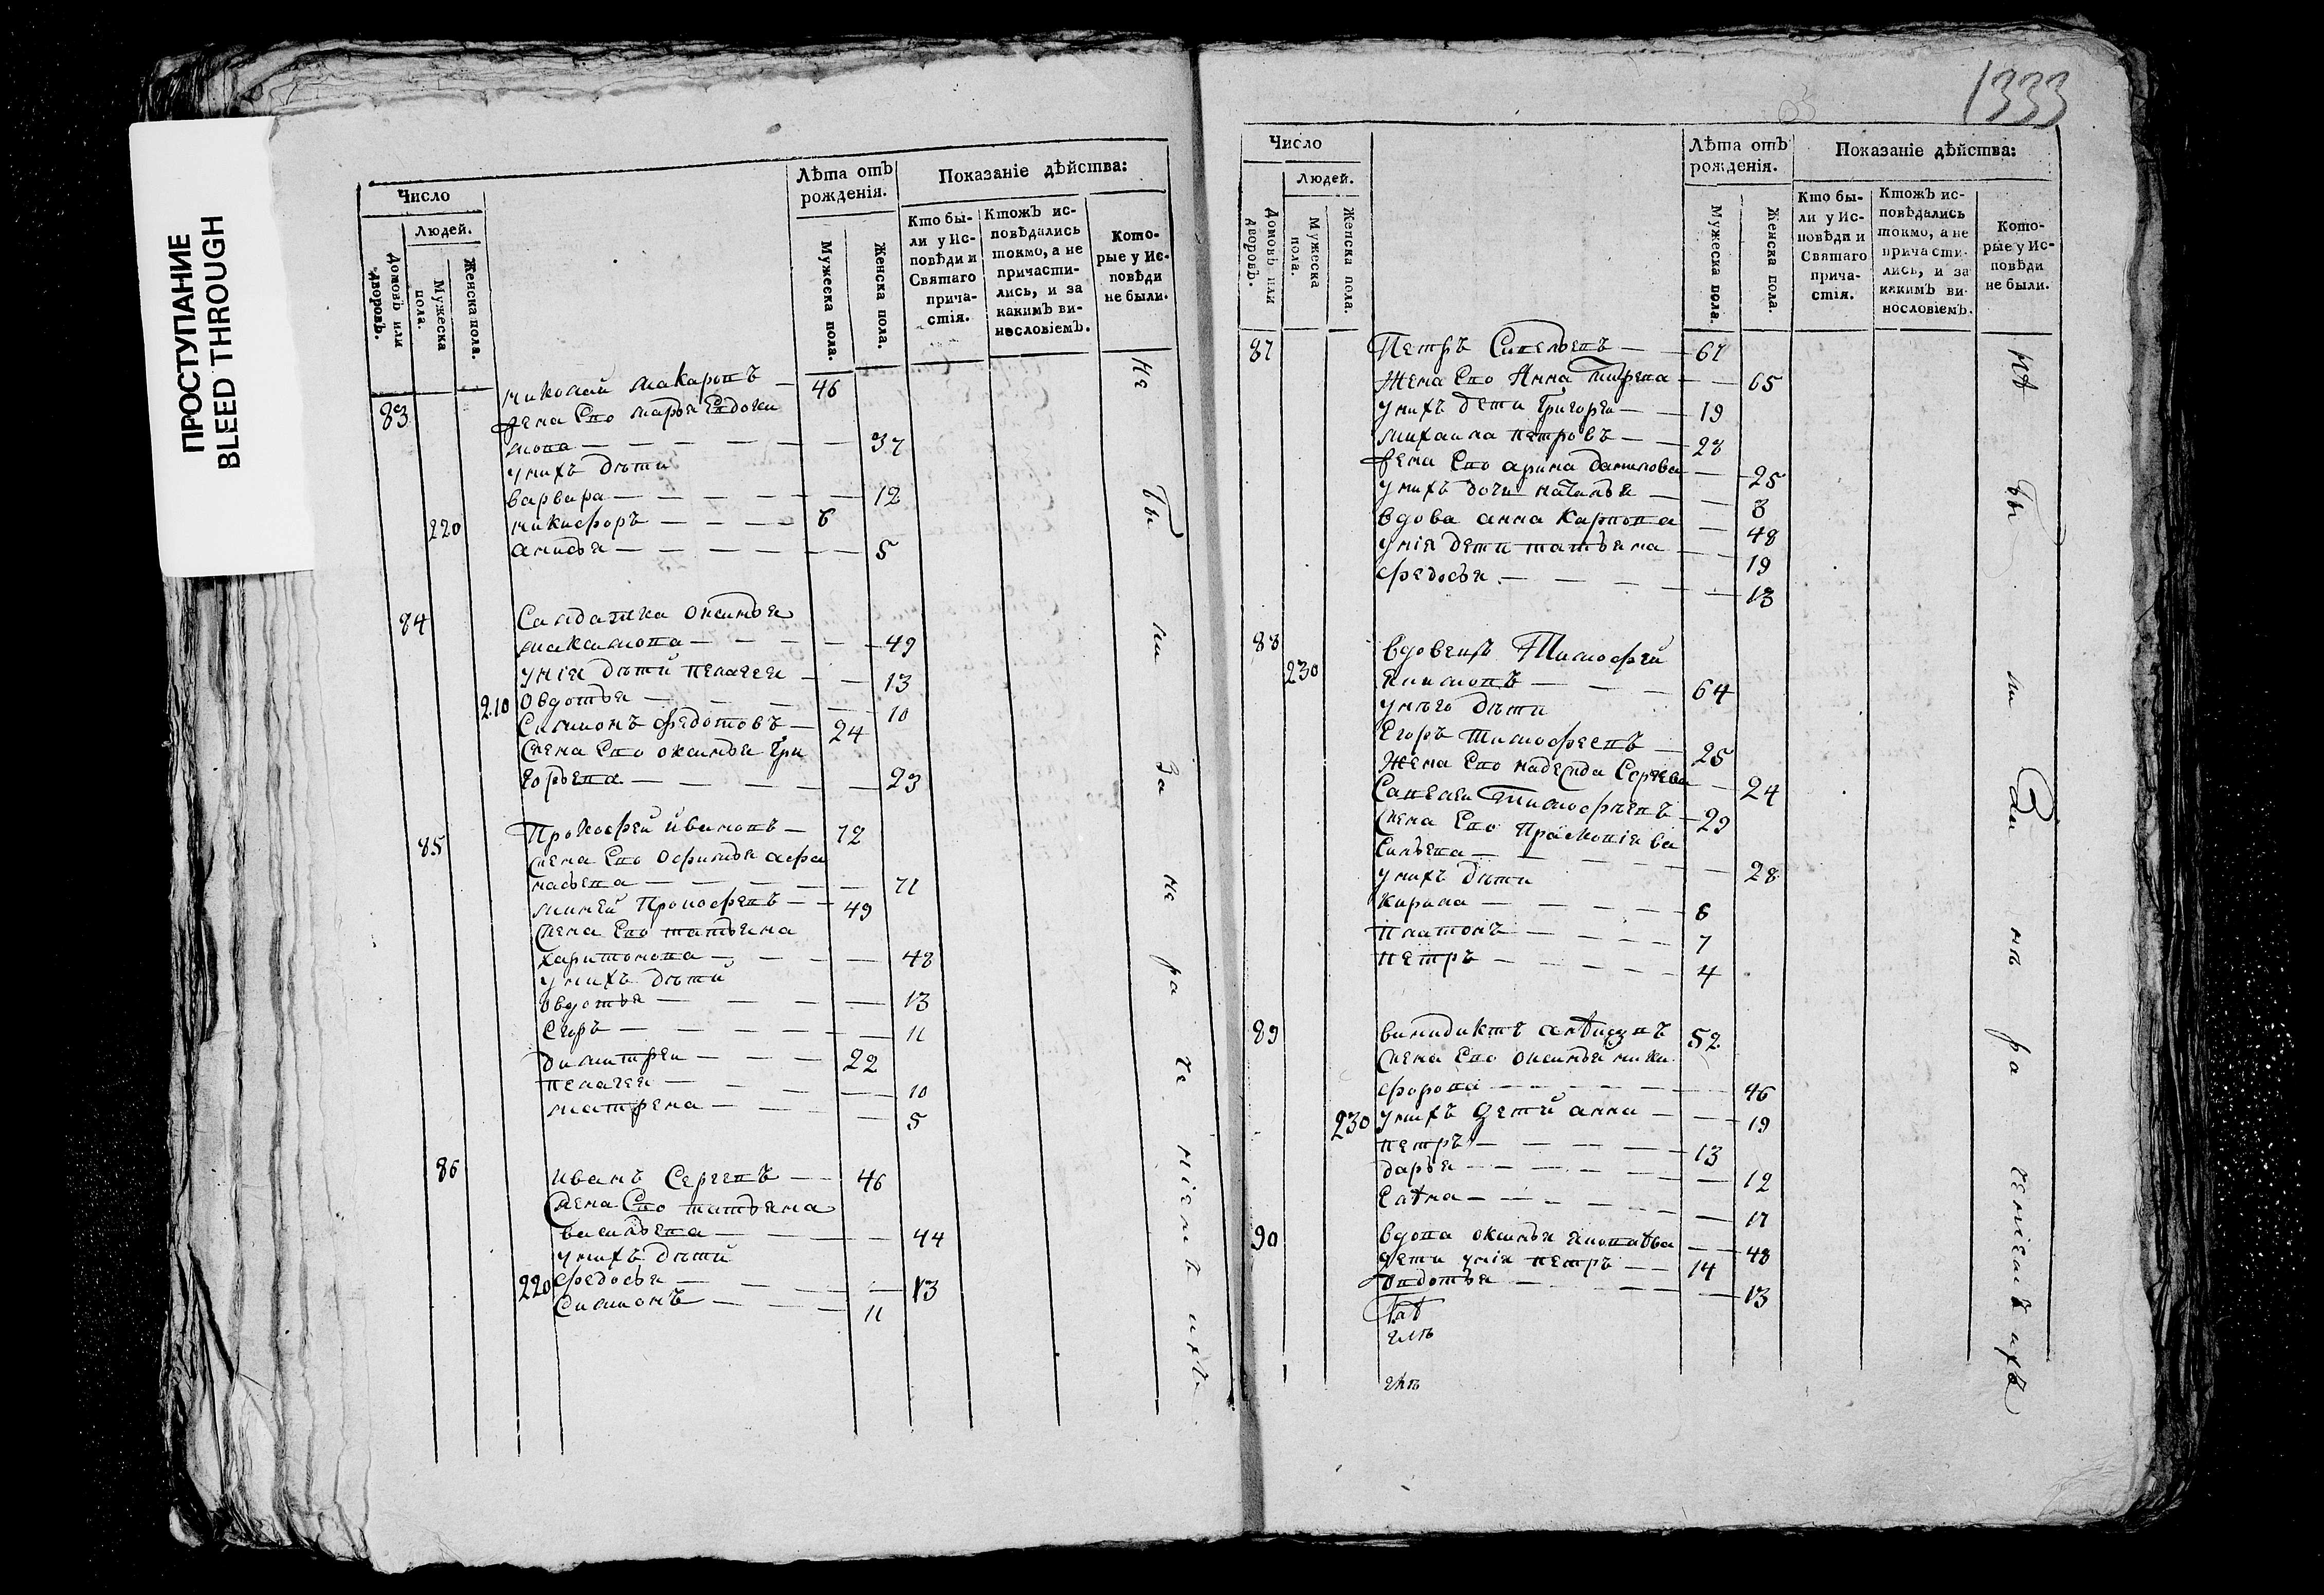 ПРОСТУПАНИЕ
BLEED THROUGH
Число
Людей.
Домовъ или дворовъ.
Мужеска пола.
Женска пола.
Лѣта отъ рожденія.
Мужеска пола.
Женска пола.
Показаніе дѣйства:
Кто бы-
ли у Ис-
повѣди и
Святаго
прича-
стія.
Ктожъ ис-
повѣдались
токмо, а не
причасти-
лись, и за
какимъ ви-
нословіемъ.
Кото-
рые у Ис-
повѣди
не были.
83 николай макаровъ — 46
жена Его марья Евдоки
мова — 37
у нихъ дѣти
варвара — 12
220 никифоръ — 6
анисья — 5
84 Салдатка
— 49
у нія дѣтй пелагея — 13
210 Овдотья — 10
Симионъ федотовъ — 24
жена Его оксинья Гри
горьева — 23
85 Прокофей ивановъ — 72
жена Его офимья афа
насьева — 71
миней Прокофевъ — 49
жена Его татьяна
харитонова — 48
у нихъ дѣтй
овдотья — 13
Егоръ — 11
димитреи — 22
пелагея — 10
матрена — 5
86 иванъ Сергевъ — 46
жена Его татьяна
васильева — 44
у нихъ дѣтй
220 федосья — 13
Симионъ — 11
Не бы ли за не ра че ніемъ ихъ
1333
Число
Людей.
Домовъ или дворовъ.
Мужеска пола.
Женска пола.
Лѣта отъ
рожденія.
Мужеска пола.
Женска пола.
Показаніе дѣйства:
Кто бы-
ли у Ис-
повѣди и
Святаго
прича-
стія.
Ктожъ ис-
повѣдались
токмо, а не
причасти-
лись, и за
какимъ ви-
нословіемъ.
Кото-
рые у Ис-
повѣди
не были.
87 Петръ Савельевъ — 67
Жена Его Анна — 65
у нихъ дети Григореи — 19
михаила петровъ — 28
жена Его арина данилова — 25
у нихъ дочи наталья — 3
вдова анна Карпова — 48
у нія дети татьяна — 19
федосья — 13
88 вдовецъ Тимофей
230 — 64
у нѣго дѣти
Егоръ тимофеевъ — 25
Жена Его надежда Сергева — 24
Савелеи Тимофѣевъ — 29
жена Его Прасковія ва
сильева — 28
у нихъ дѣти
Кирила — 8
Платонъ — 7
петръ — 4
89 винидиктъ — 52
жена Его оксинья ники
форова — 46
230 у нихъ детй анна — 19
петръ — 13
дарья — 12
— 17
90 вдова оксинья — 48
дети у нія петръ — 14
овдотья — 13
не бы ли за нѣ ра ченіемъ ихъ